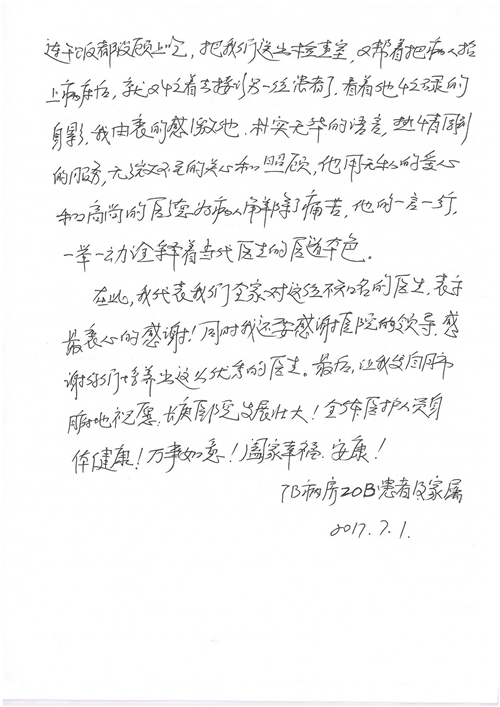 连干饭都没顾上吃，把我们送出检查室，又帮着把病人抬
上病床后，就又忙着去接诊另一位患者了，看着他忙碌的
身影，我由衷的感激他，朴实无华的语言，热情周到
的服务，无微不至的关心和照顾，他用无私的爱心
和高尚的医德为病人解除了痛苦，他的一言一行，
一举一动诠释着当代医生的医道本色。
在此，我代表我们全家对这位不知名的医生，表示
最衷心的感谢！同时我还要感谢医院的领导，感
谢你们培养出这么优秀的医生。最后，让我发自肺
腑地祝愿：长庚医院发展壮大！全体医护人员身
体健康！万事如意！阖家幸福、安康！
7B病房20B患者及家属
2017.7.1.